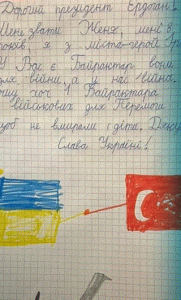 Дорогий президент Ердоган!
Мене звати Женя, мені 8
років, я з міста-герой
У Вас є Байрактар вони
для війни, а у нас війна.
хоч 1 Байрактара
військових для Перемоги
щоб не вмирали і діти.
Слава Україні!